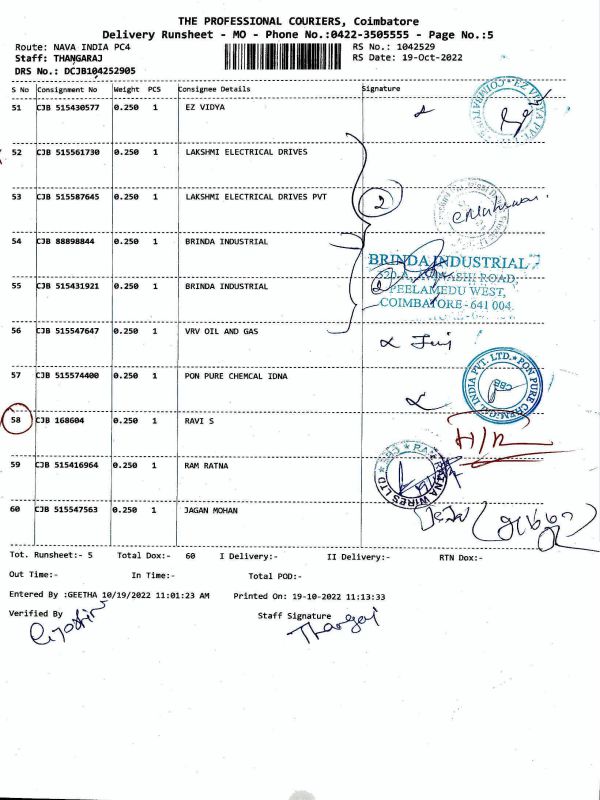 THE PROFESSIONAL COURIERS, Coimbatore
Delivery Runsheet - MO - Phone No.:0422-3505555 - Page No.:5
Route: NAVA INDIA PC4 RS No.: 1042529
Staff: THANGARAJ RS Date: 19-Oct-2022
DRS No.: DCJB104252905
S No Consignment No Weight PCS Consignee Details Signature
51 CJB 515430577 0.250 1 EZ VIDYA
EZ VIDYA PVT. COIMBATORE
52 CJB 515561730 0.250 1 LAKSHMI ELECTRICAL DRIVES
53 CJB 515587645 0.250 1 LAKSHMI ELECTRICAL DRIVES PVT 2
54 CJB 88898844 0.250 1 BRINDA INDUSTRIAL
BRINDA INDUSTRIAL
55 CJB 515431921 0.250 1 BRINDA INDUSTRIAL 2
ROAD,
PEELAMEDU WEST,
COIMBATORE - 641 004.
56 CJB 515547647 0.250 1 VRV OIL AND GAS
57 CJB 515574400 0.250 1 PON PURE CHEMCAL IDNA
PON PURE CHEMICAL INDIA PVT. LTD. CBE
58 CJB 168604 0.250 1 RAVI S H/R
59 CJB 515416964 0.250 1 RAM RATNA
RATNA WIRES LTD
60 CJB 515547563 0.250 1 JAGAN MOHAN
Tot. Runsheet:- 5 Total Dox:- 60 I Delivery:- II Delivery:- RTN Dox:-
Out Time:- In Time:- Total POD:-
Entered By :GEETHA 10/19/2022 11:01:23 AM Printed On: 19-10-2022 11:13:33
Verified By Staff Signature
Thangaj